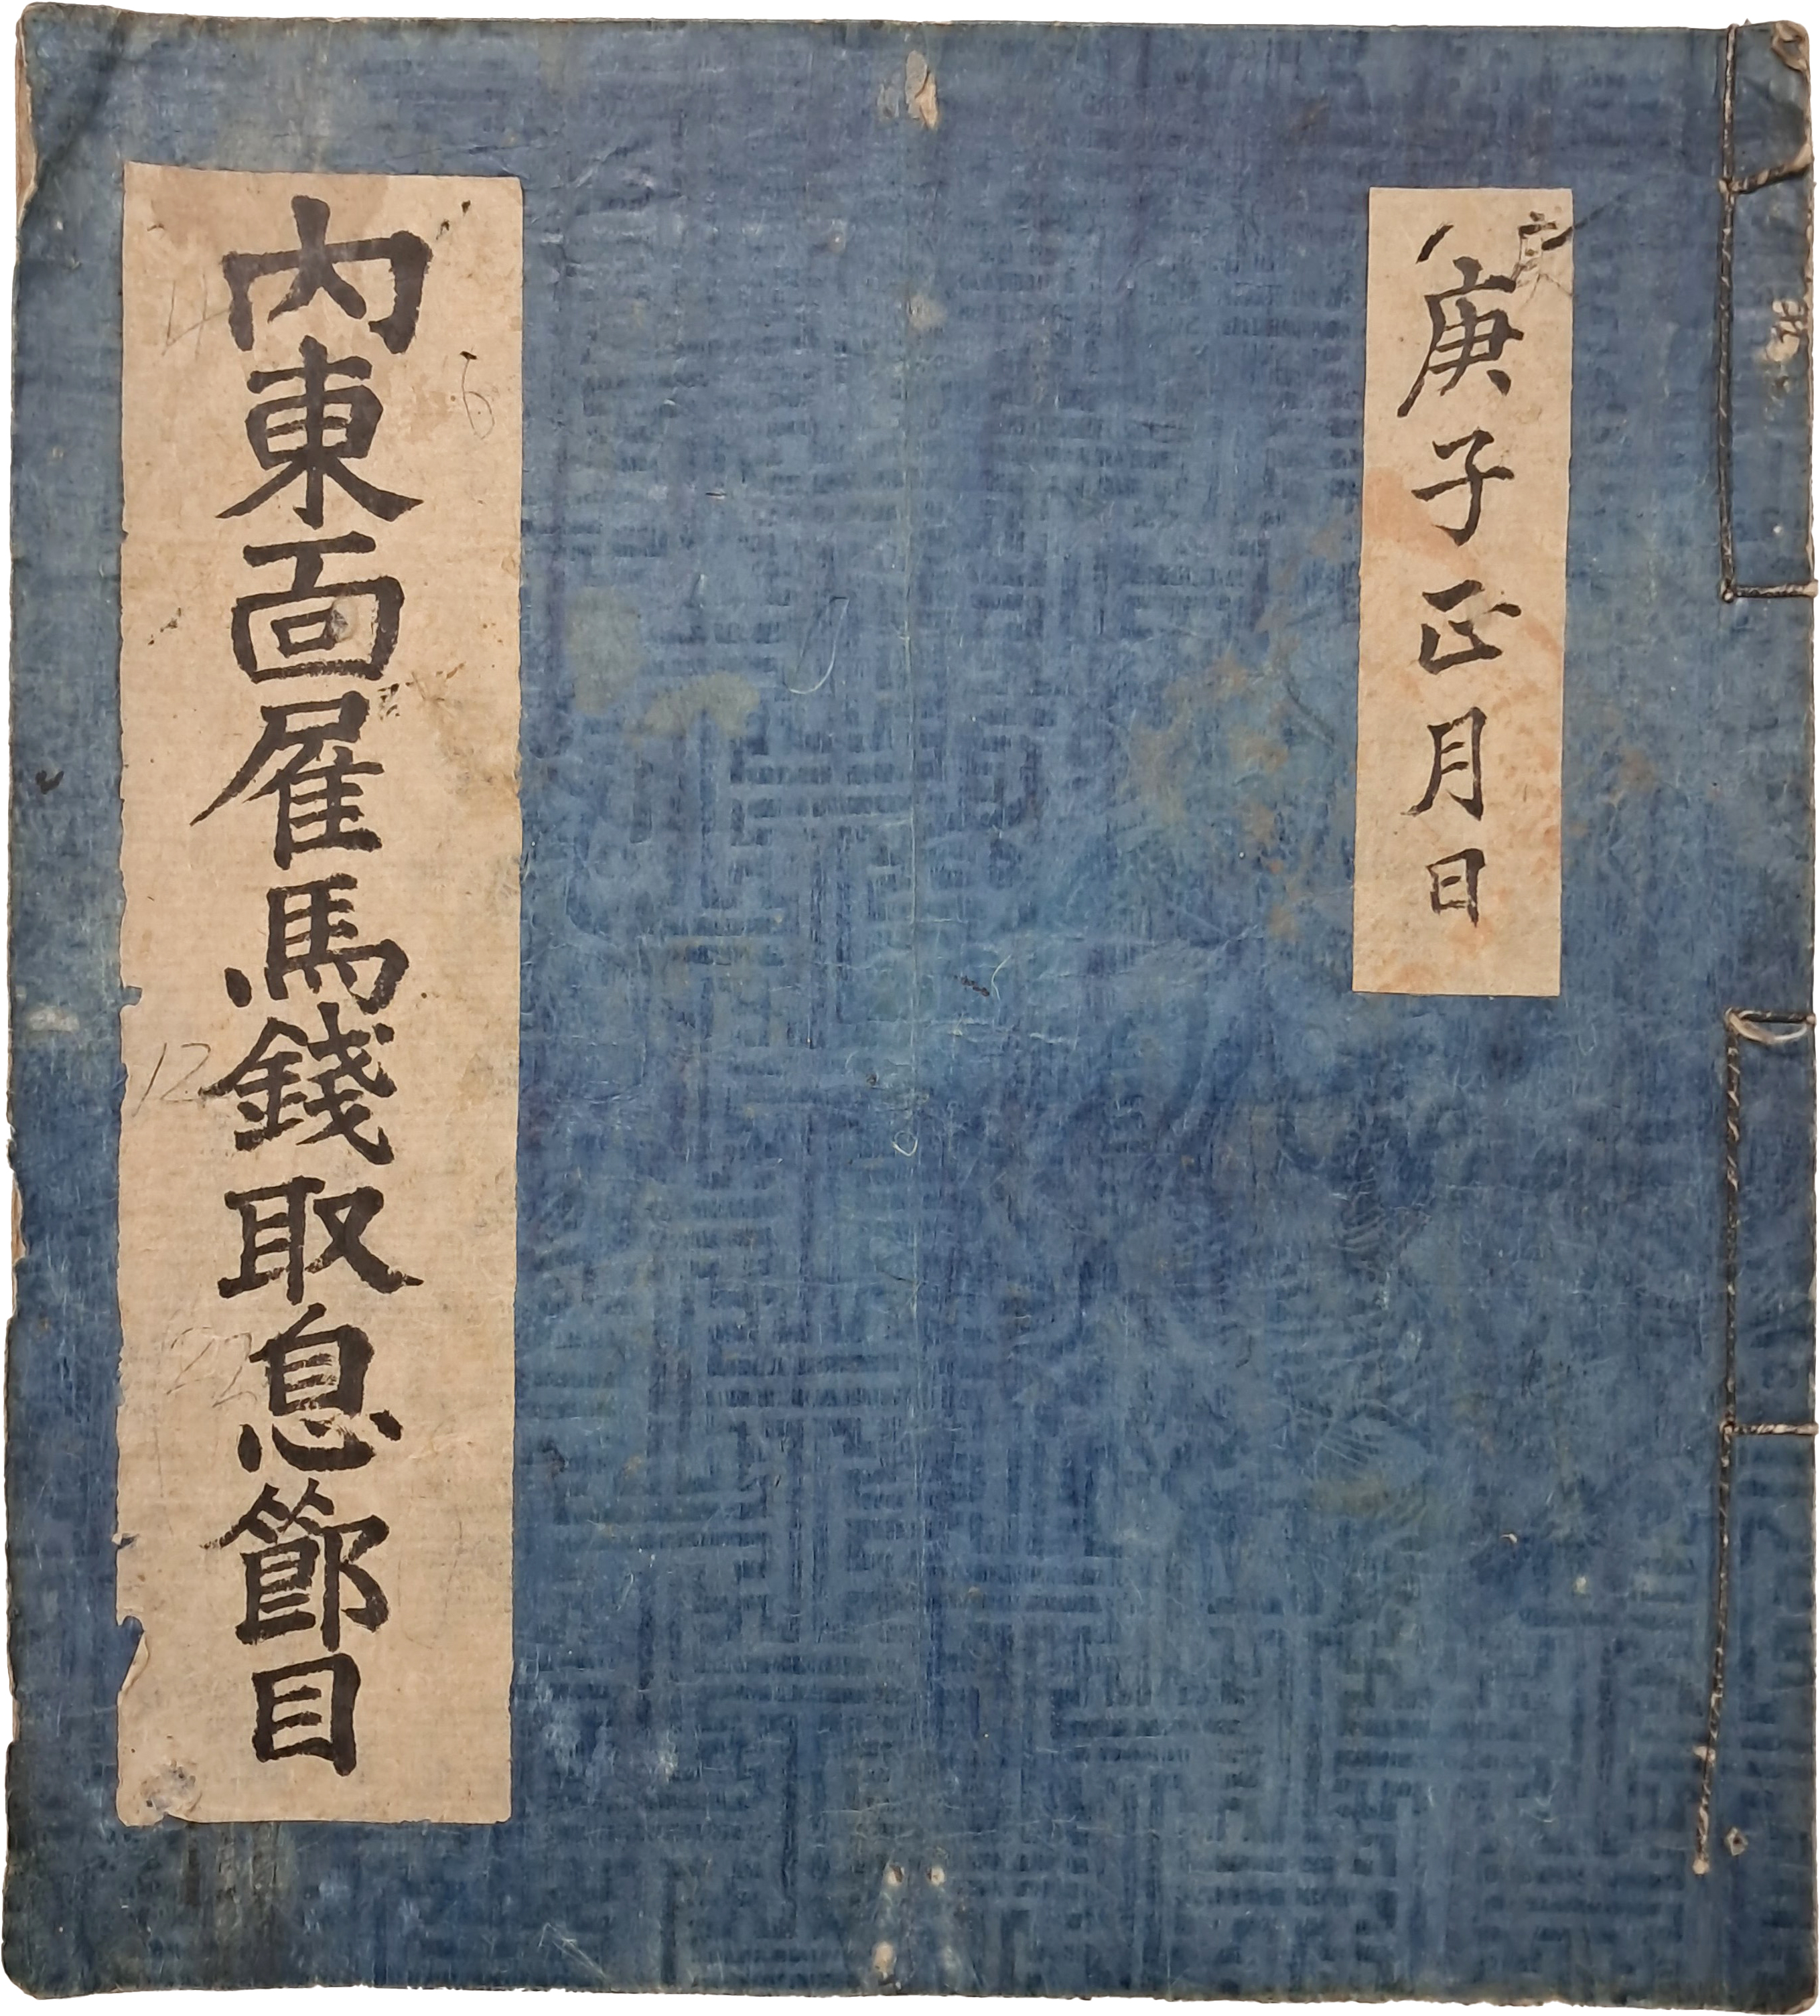 庚子正月日
內東面雇馬錢取息節目